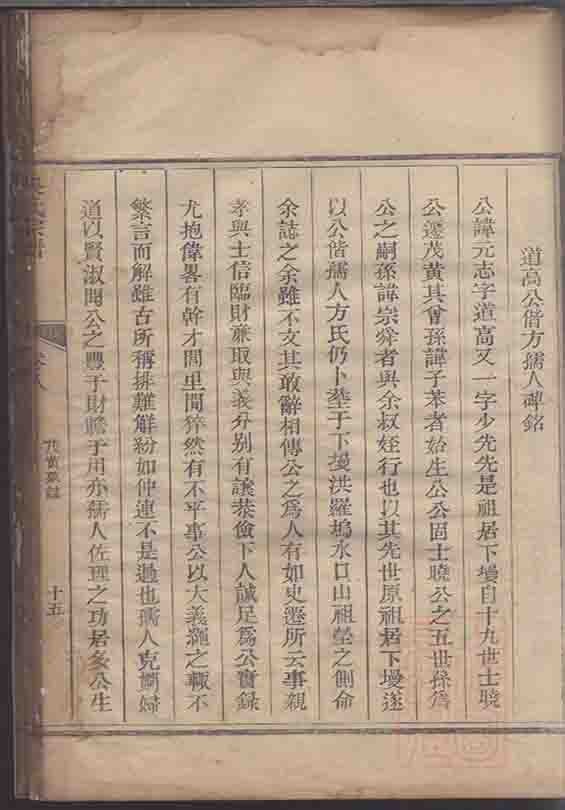 道高公偕方孺人碑銘
公諱元志字道高又一字少先先是祖居下墁自十九世士曉
公遷茂黃其曾孫諱子荣者始生公公固士曉公之五世孫爲
公之嗣孫諱宗舜者與余叔姪行也以其先世原祖居下墁遂
以公偕孺人方氏仍卜塟于下墁洪羅塢水口山祖塋之側命
余誌之余雖不文其敢辭相傳公之爲人有如史遷所云事親
孝與士信臨財亷取與義分别有讓恭儉下人誠足爲公實録
尤抱偉畧有幹才閭里間猝然有不平事公以大義繩之輙不
繁言而解雖古所稱排難解紛如仲連不是過也孺人克嫻婦
道以賢淑聞公之豐于財贍于用亦孺人佐理之功居多公生
十五